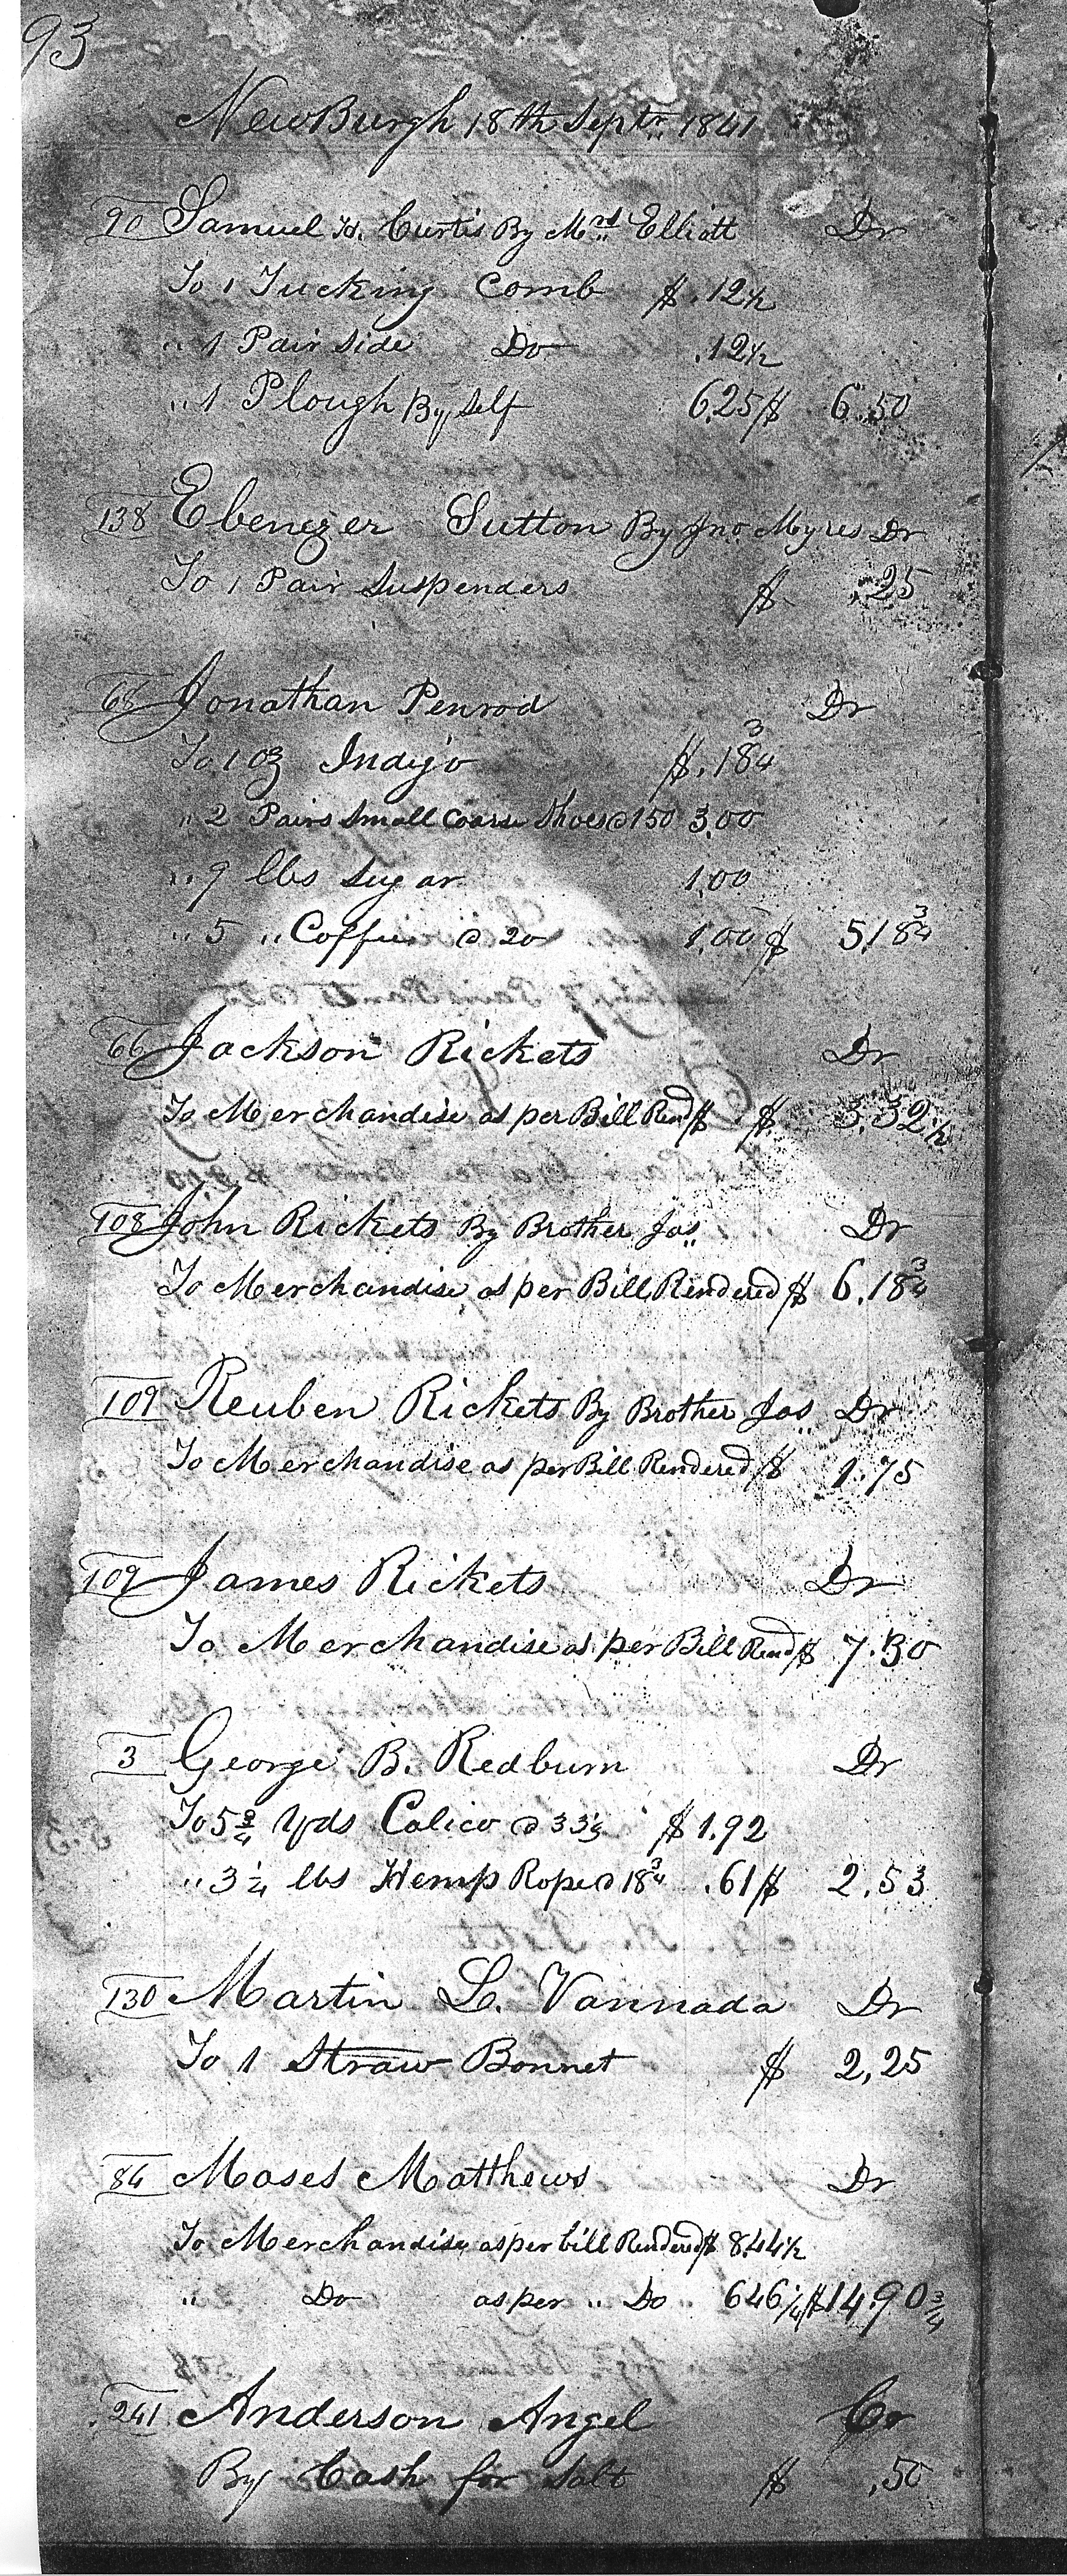 93
NewBurgh 18th Septr. 1841
90 Samuel H. Curtis By Mrs Elliott Dr
To 1 Tucking Comb $ .12½
" 1 Pair Side Do .12½
" 1 Plough By Self 6.25 $ 6.50
138 Ebenezer Sutton By Jno Myres Dr
To 1 Pair Suspenders $ .25
68 Jonathan Penrod Dr
To 1 oz Indigo $ .18¾
" 2 Pairs Small Coarse Shoes @ 150 3.00
" 9 lbs Sugar 1.00
" 5 " Coffee @ 20 1.00 $ 5.18¾
66 Jackson Rickets Dr
To Merchandise as per Bill Rend $ $ 3.32½
108 John Rickets By Brother Jas. Dr
To Merchandise as per Bill Rendered $ 6.18¾
109 Reuben Rickets By Brother Jas. Dr
To Merchandise as per Bill Rendered $ 1.75
109 James Rickets Dr
To Merchandise as per Bill Rend $ 7.30
3 George B. Redburn Dr
To 5¾ Yds Calico @ 33⅓ $ 1.92
" 3¼ lbs Hemp Rope @ 18¾ .61 $ 2.53
130 Martin L. Vannada Dr
To 1 Straw Bonnet $ 2,25
84 Moses Matthews Dr
To Merchandise as per bill Rendered $ 8.44½
" Do as per " Do 646¼ $ 14.90¾
241 Anderson Angel Cr
By Cash for Salt $ .50